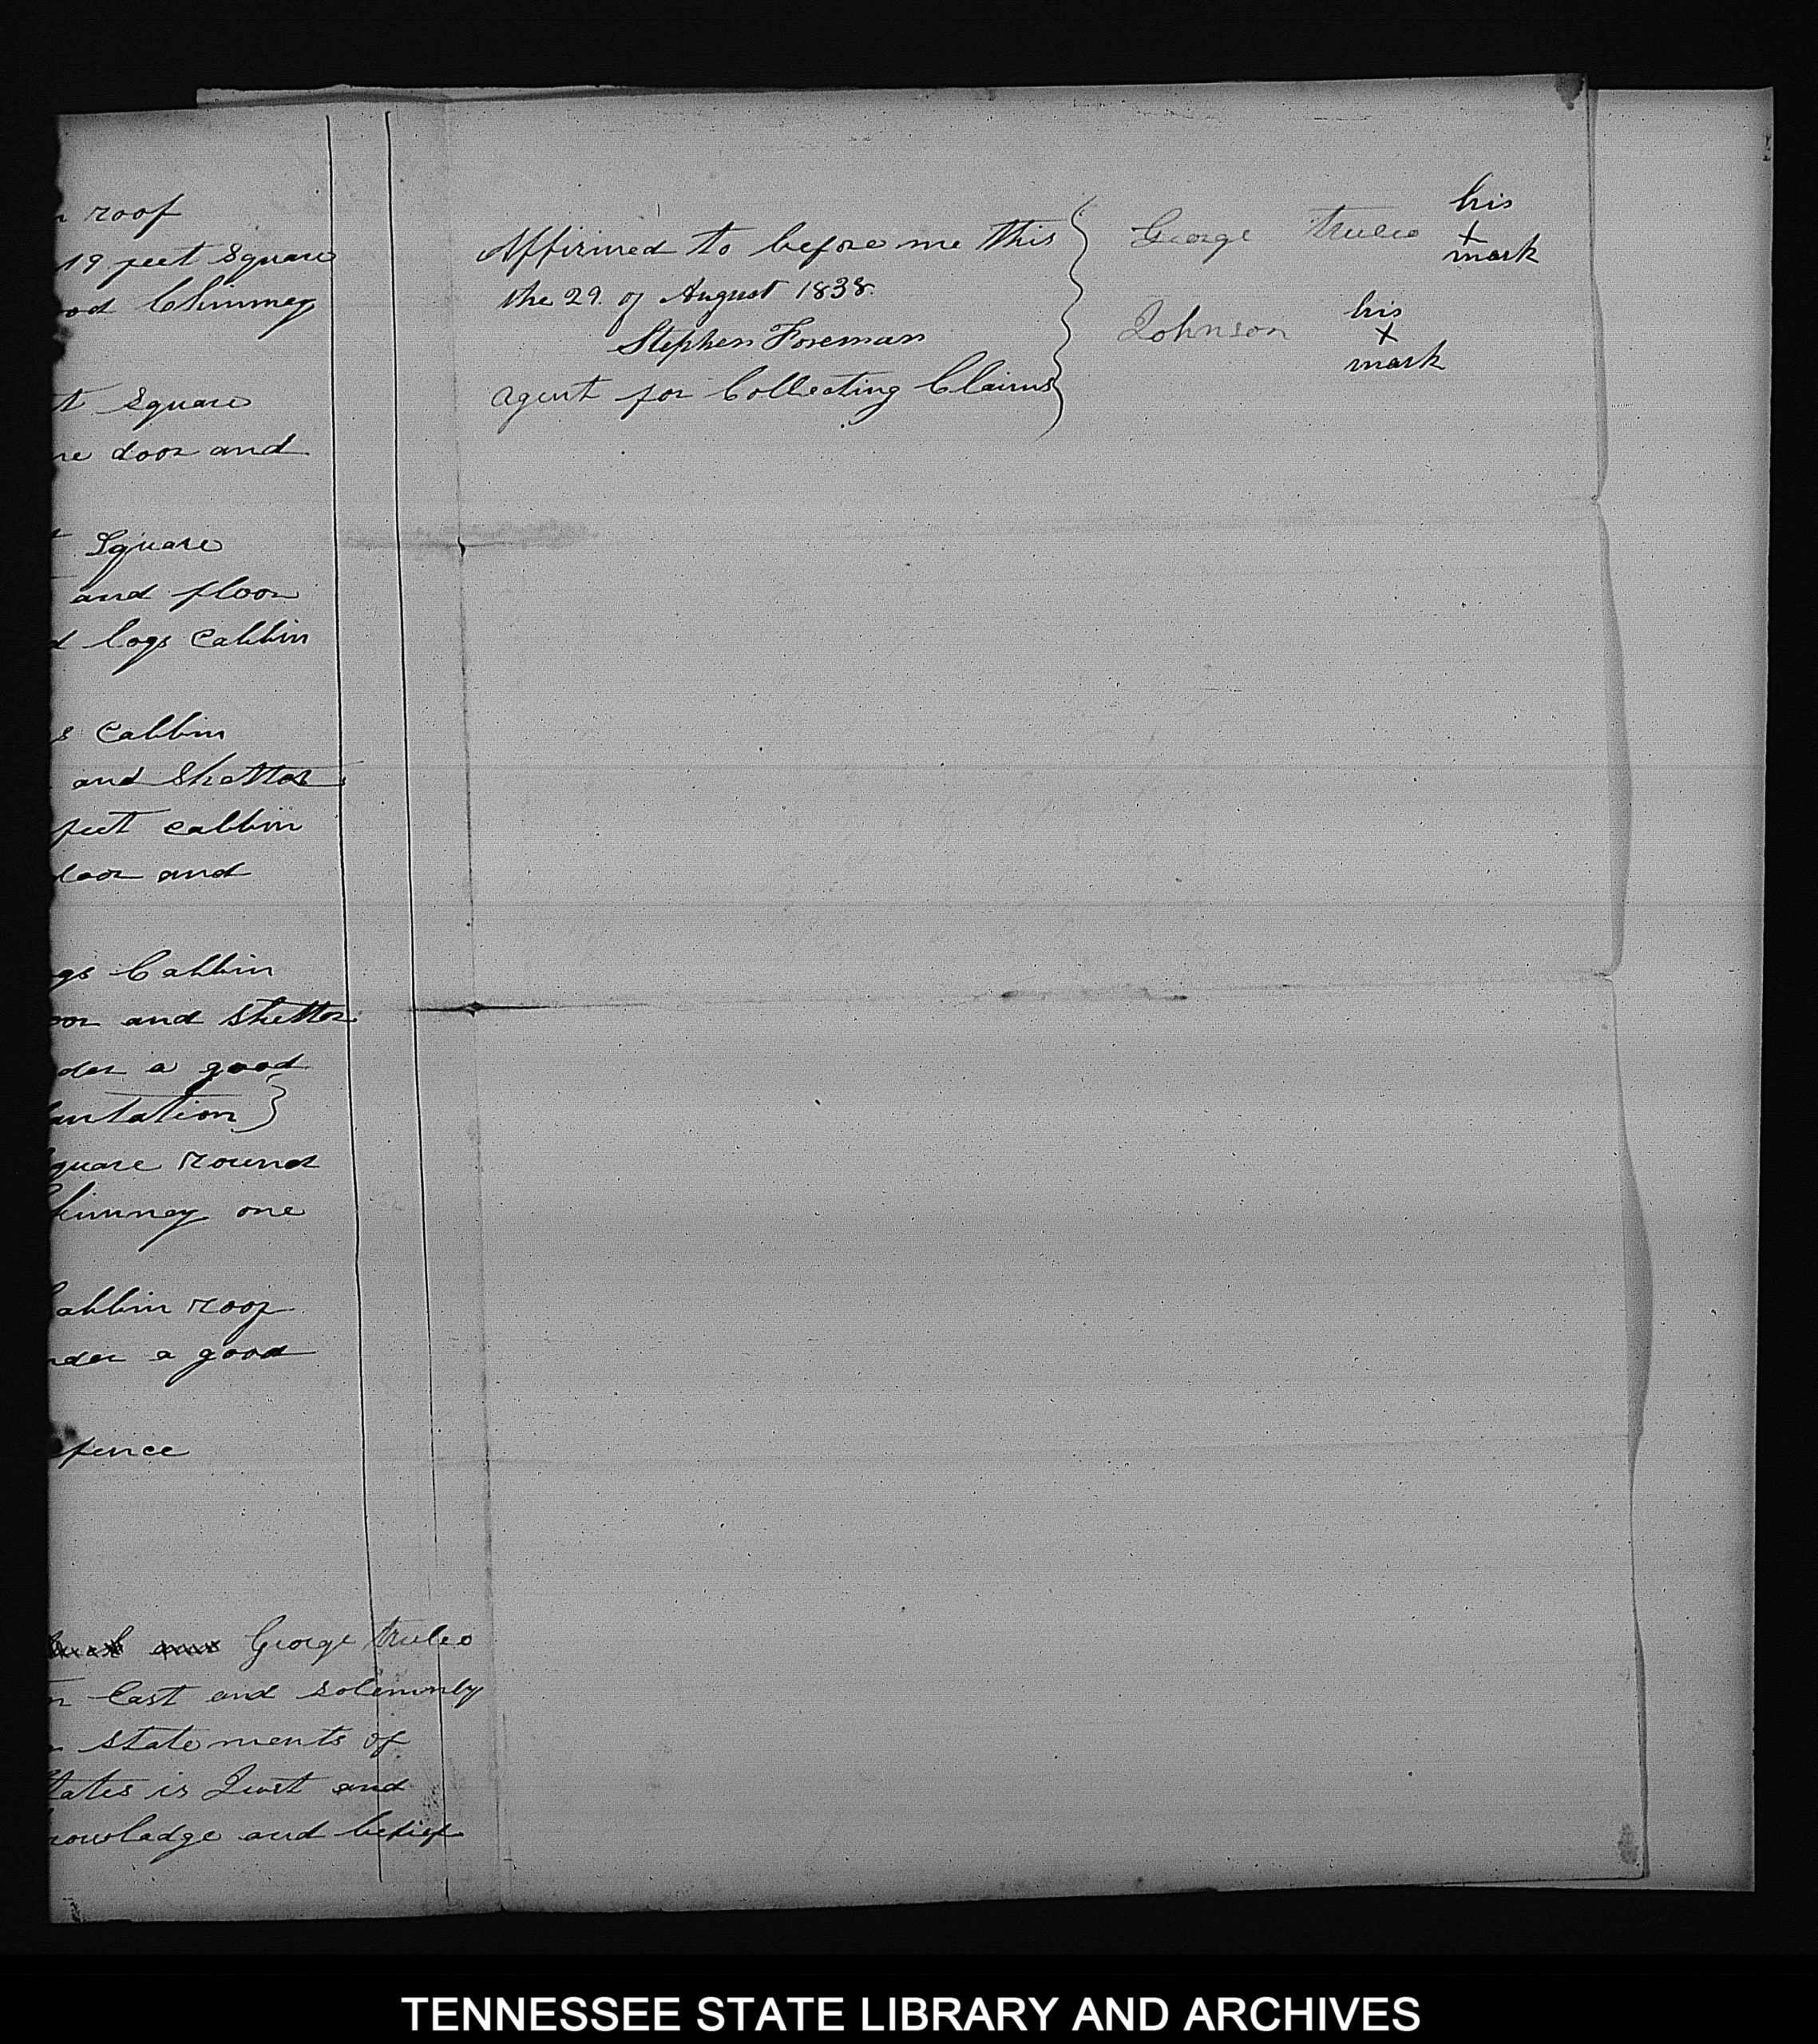 roof
19 feet Square
Chimney
Square
door and
Square
and floor
logs Cabbin
Cabbin
and Shetter
feet cabbin
door and
Cabbin
and Shetter
a good
square round
Chimney one
Cabbin roof
a good
fence
George
East and solemnly
statements of
States is Just and
knowladge and belief
Affirmed to before me this
the 29. of August 1838.
Stephen Foreman
agent for Collecting Claims
George his
x
mark
Johnson his
x
mark
TENNESSEE STATE LIBRARY AND ARCHIVES